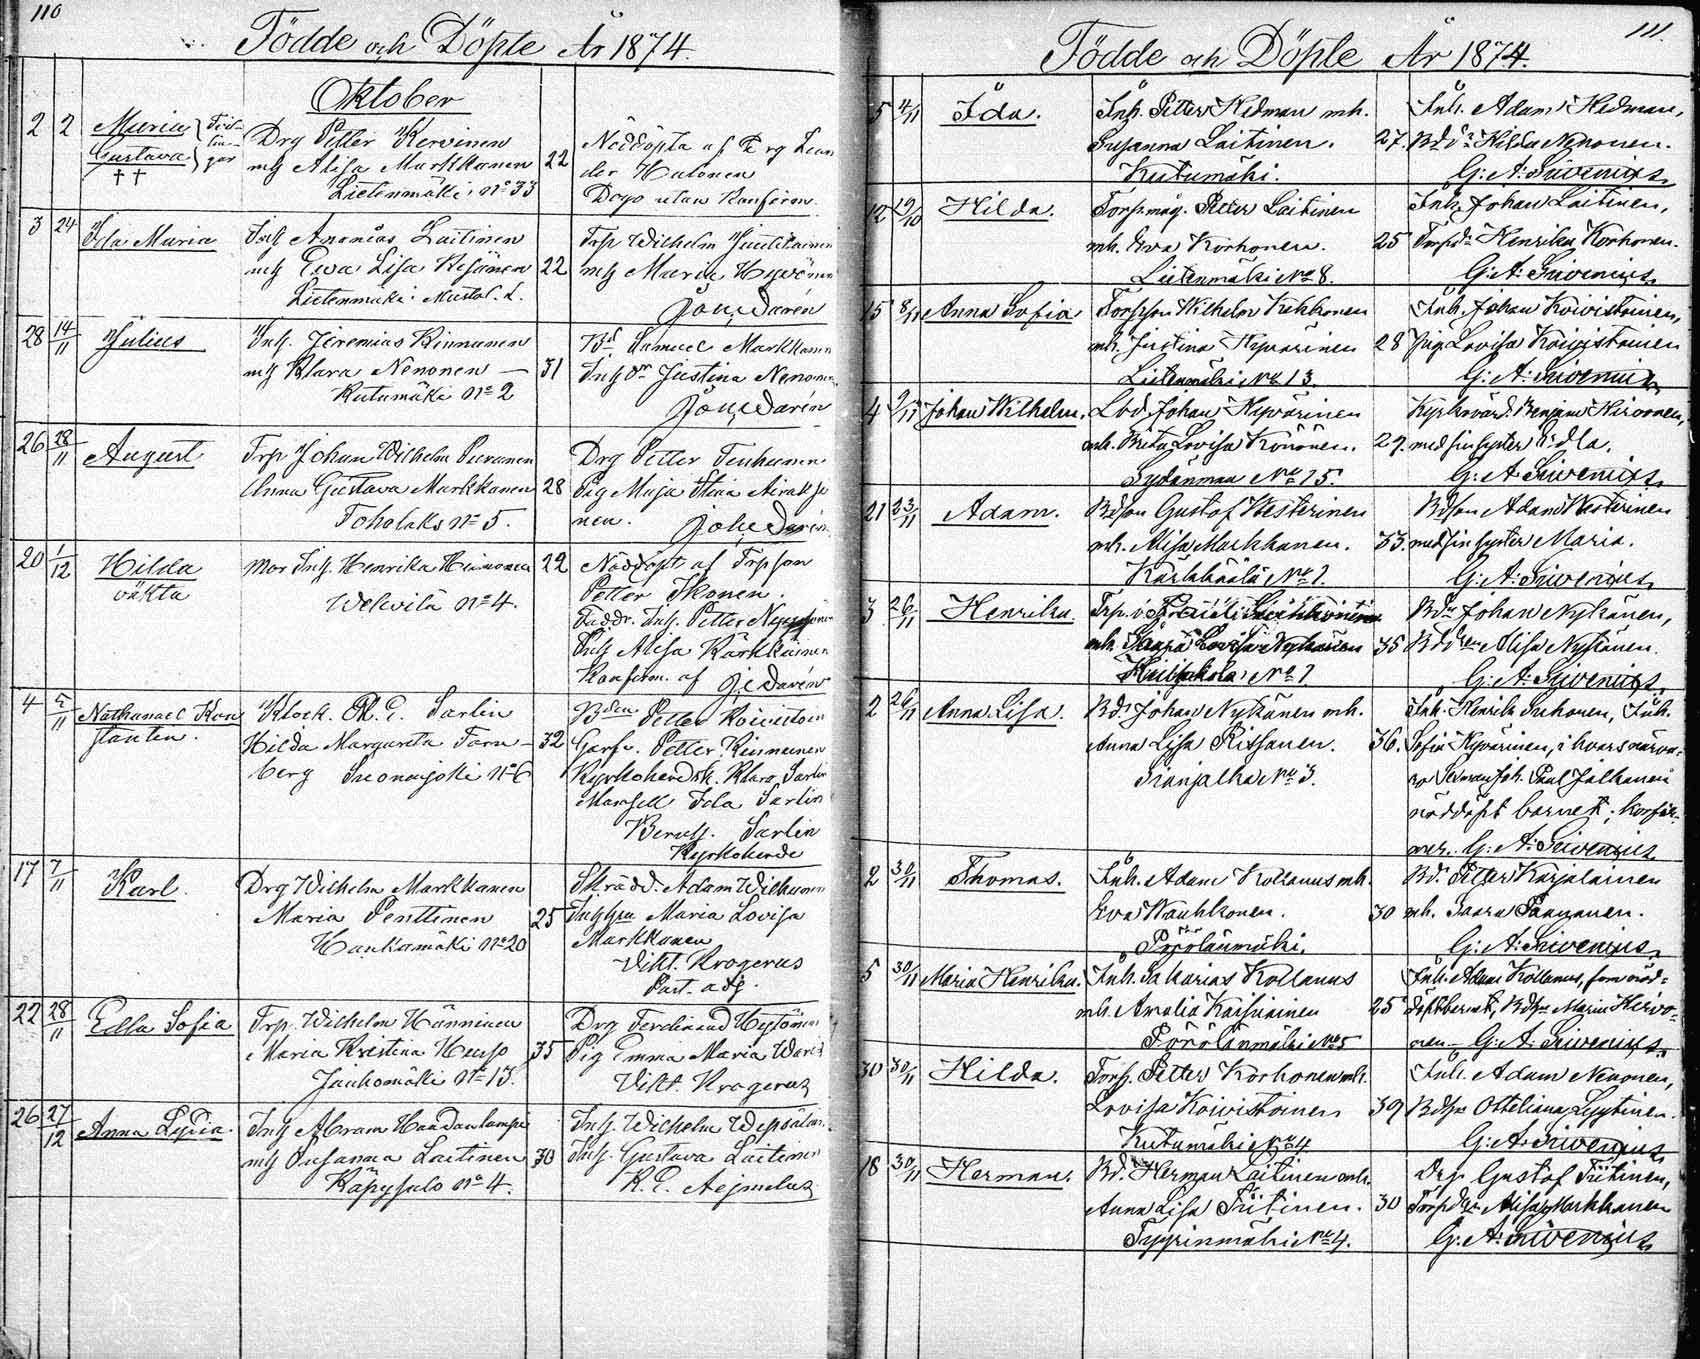 110
Födde och Döpte År 1874.
Oktober
2 2 Maria Gustava Tvillingar ††
Drg Petter Kervinen
mh Alisa Markkanen 22
Lietenmäki nº 33
Nöddöpta af Drg
Hutonen
3 24 Ida Maria
Inh Ananias Laitinen
mh Ewa Lisa Resänen 22
Lietenmäki
Trp Wilhelm
mh Maria
28 14/11 Julius
Inh. Jeremias Kinnunen
mh Klara Nenonen — 31
Kutumäki nº 2
Bd Samuel Markkanen
Inh Justina Nenonen
26 28/11 August
Trp Johan Wilhelm Puranen
Anna Gustava Markkanen 28
Toholaks nº 5.
Drg Petter Tenhunen
Pig Maja Stina Airaksi
nen.
20 1/12 Hilda
oäkta
Mor Inh. Henrika Heinonen 22
Wehvilä nº 4.
Nöddöpt af Trpson
Petter Ikonen.
Faddr. Inh. Petter
Inh Alisa Kärkkäinen
Konfirm. af
4 5/11 Nathanael Kon
stantin.
Klock. Sarlin
Hilda Margareta Forn— 32
berg Suonnejoki nº 6
Petter Koivistoin
Petter Kinnunen
Klara Sarlin
Mamsell Ida Sarlin
Sarlin
Kyrkoherde
17 7/11 Karl.
Drg Wilhelm Markkanen
Maria Penttinen 25
Hankamäki nº 20
Skrädd. Adam
Maria Lovisa
Markkanen
Vikt. Krogerus
Past. adj.
22 28/11 Edla Sofia
Trp. Wilhelm Hänninen
Maria Kristina 35
Jauhomäki nº 13.
Drg Ferdinand
Pig Emma Maria
Vikt. Krogerus
26 27/12 Anna Lydia.
Inh Abram Haadanlampi
mh Susanna Laitinen 30
Käpysalo nº 4.
Inh. Wilhelm
Inh. Gustava Laitinen
K. E. Aejmelus
111.
Födde och Döpte År 1874.
5 4/11 Ida.
Inh. Petter Hedman mh.
Susanna Laitinen. 27.
Kutumäki.
Inh. Adam Hedman,
Hilda Nenonen.
G: A: Sivenius
12 19/10 Hilda.
Torpmåg. Petter Laitinen
mh. Eva Korhonen. 25
Lietenmäki No 8.
Inh. Johan Laitinen,
Henrika Korhonen.
G: A: Sivenius
15 8/11 Anna Sofia
Torpson Wilhelm Kekkonen
mh. Justina Hyvärinen 28
Lietenmäki No 13.
Inh. Johan Koivistoinen,
Pig. Lovisa Koivistoinen
G: A: Sivenius
4 Johan Wilhelm.
Johan Hyvärinen
mh. Brita Lovisa Könönen. 29.
Sydänmaa No 15.
Kyrkovärd. Benjam Hirvonen,
med sin syster Edla.
G: A: Sivenius
21 23/11 Adam.
Bdson Gustof Westerinen
mh. Alisa Markkanen. 33.
Kärkkäälä No 1.
Bdson Adam Westerinen
med sin syster Maria.
G: A: Sivenius
3 26/11 Henrika.
mh. Lovisa Nykänen 35
No 1
Johan Nykänen,
Alisa Nykänen.
G: A: Sivenius
2 26/11 Anna Lisa.
Bd. Johan Nykänen mh.
Anna Lisa Pitkänen. 36.
Sianjalka No 3.
Inh. Henrik Suhonen, Inh.
Sofia Hyvärinen, i hvars närva-
ro Joh. Paul Jalkanen
nöddöpt barnet;
G: A: Sivenius
2 30/11 Thomas.
Inh. Adam Kollanus mh.
Eva Wauhkonen. 30
Pörölänmäki.
Bd. Petter Karjalainen
mh. Saara Paananen.
G: A: Sivenius
5 30/11 Maria Henrika.
Inh. Sakarias Kollanus
mh. Amalia 25
Pörölänmäki No 5
Inh. Adam Kollanus, som nöd-
döpt barnet, Maria Hirvo-
nen — G: A: Sivenius
30 30/11 Hilda.
Torp. Petter Korhonen mh.
Lovisa Koivistoinen 39
Kutumäki No 4
Inh. Adam Nenonen,
Otteliana Lyytinen.
G: A: Sivenius
18 30/11 Herman.
Bd. Herman Laitinen mh.
Anna Lisa Tiitinen. 30
Tyyrinmäki No 4.
Drg. Gustof Tiitinen,
Alisa Markkanen
G: A: Sivenius